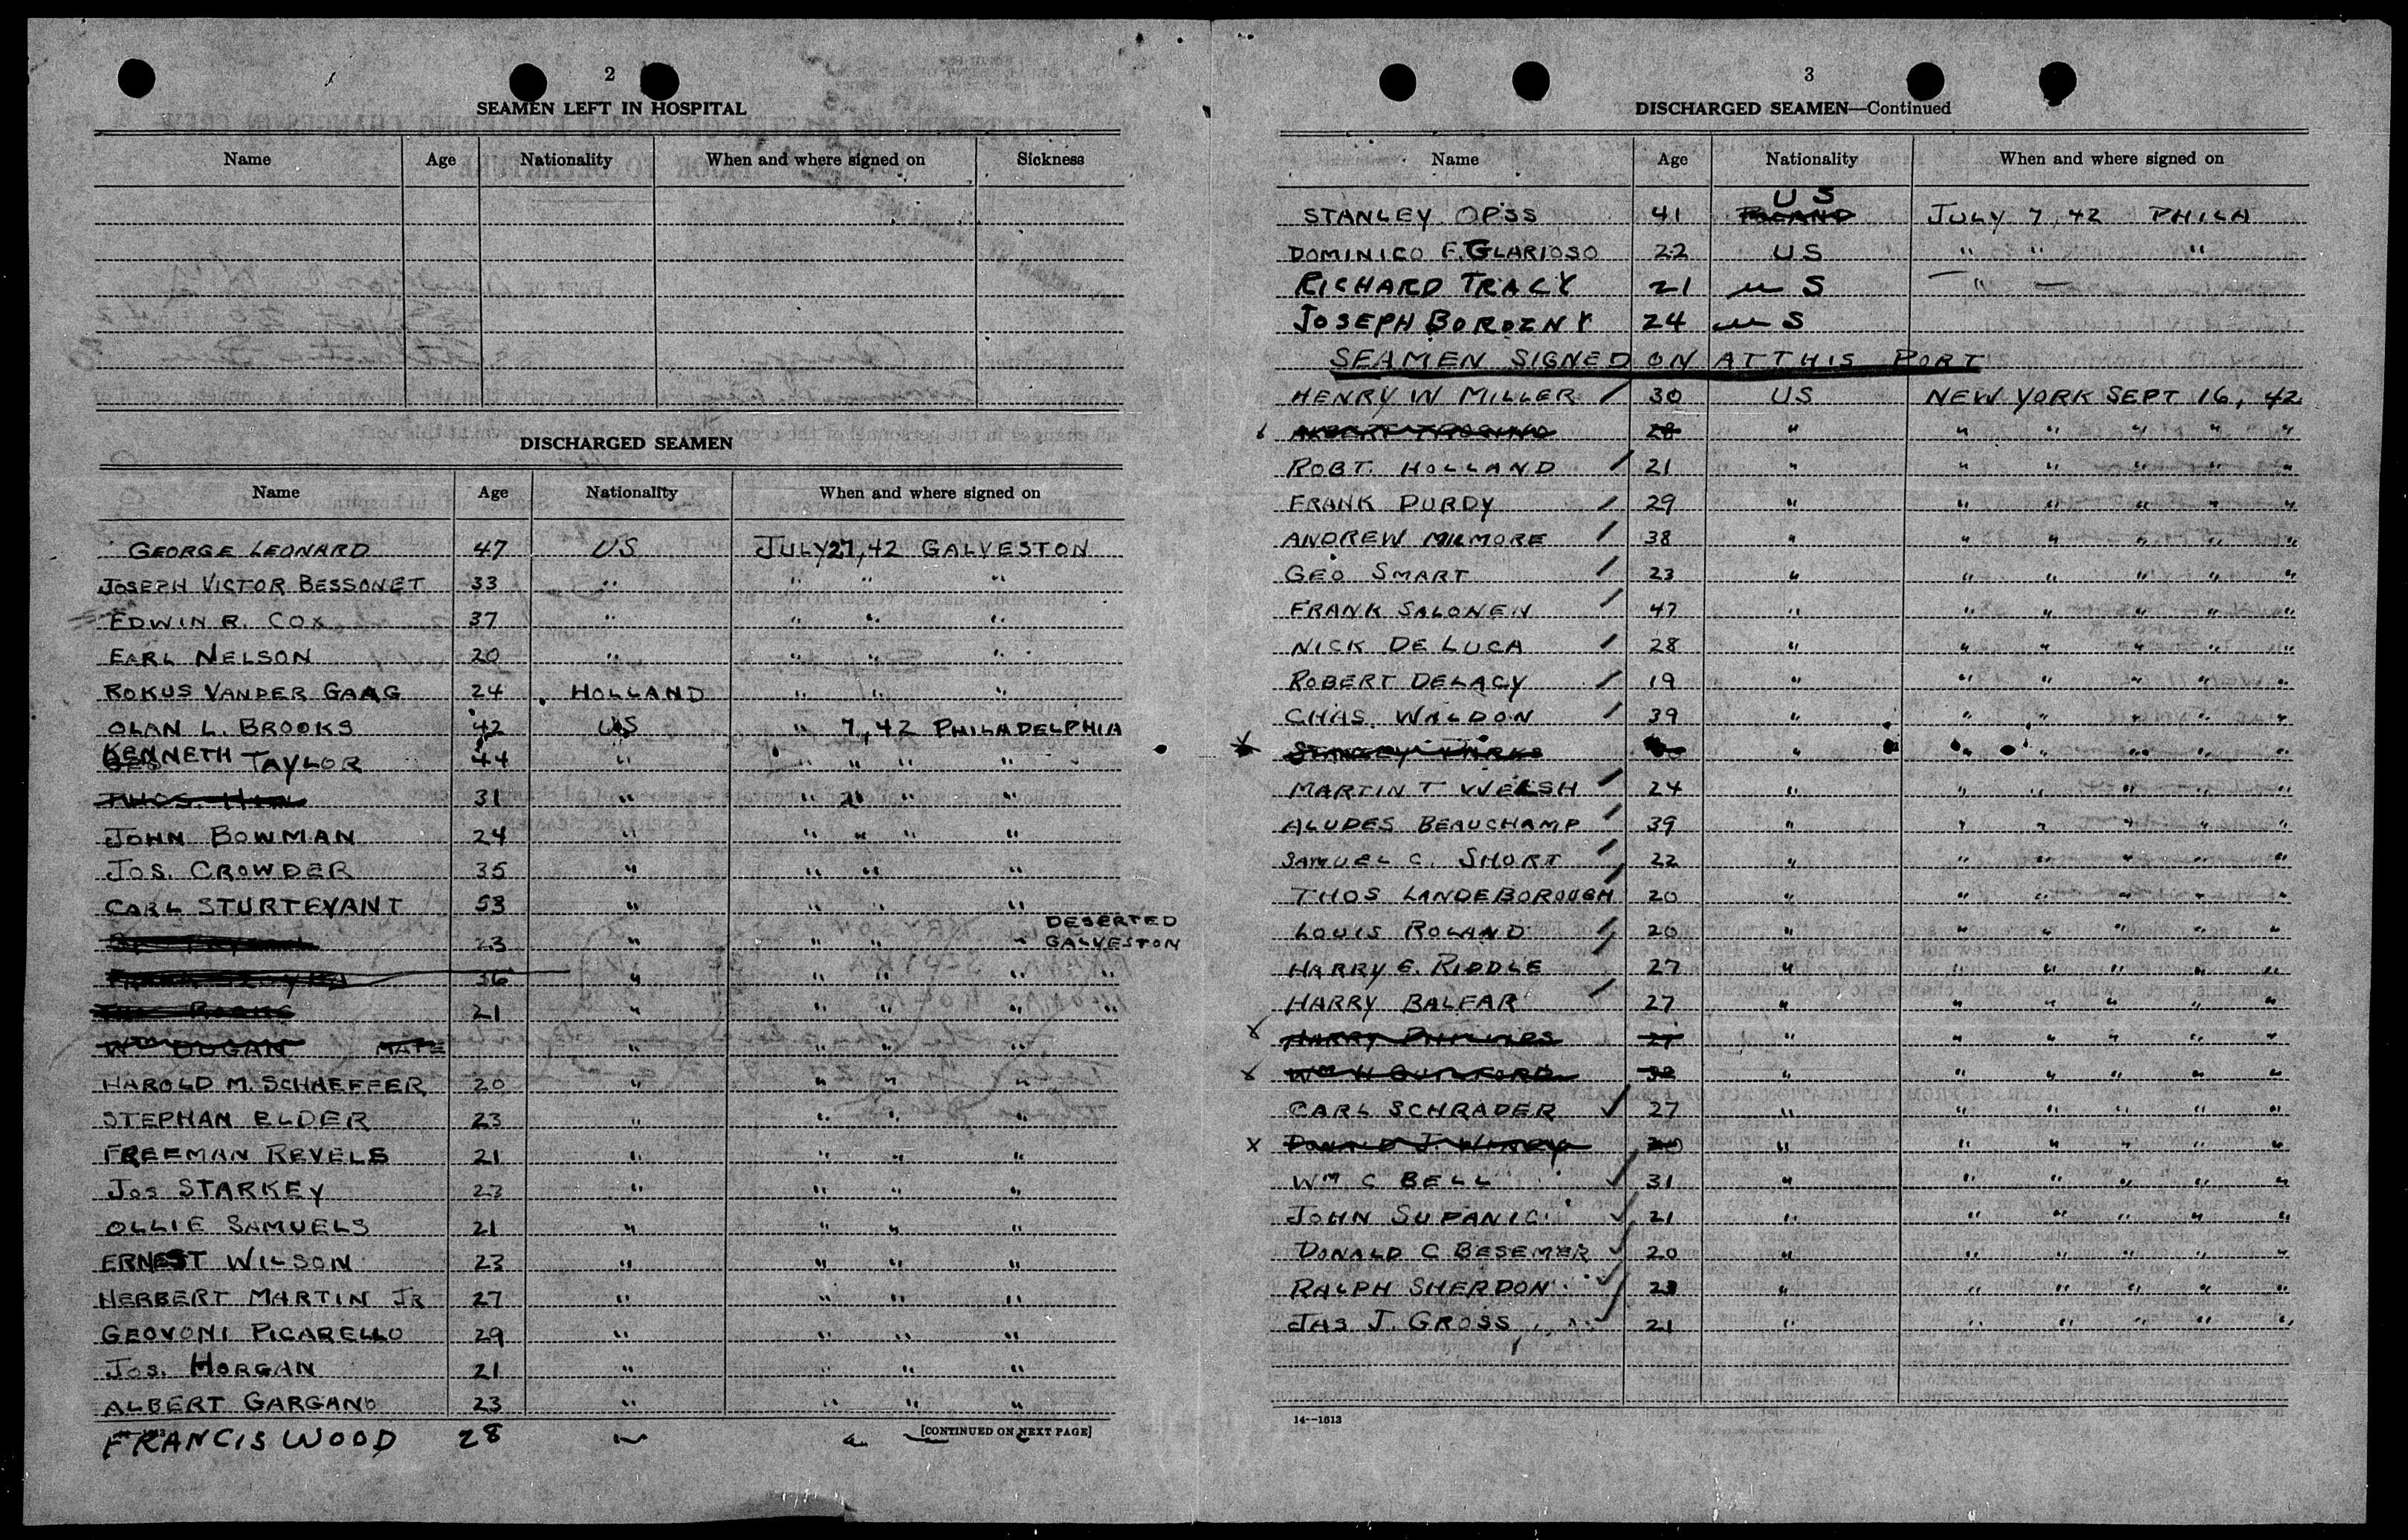 2
SEAMEN LEFT IN HOSPITAL
Name Age Nationality When and where signed on Sickness
DISCHARGED SEAMEN
Name Age Nationality When and where signed on
GEORGE LEONARD 47 US JULY 27, 42 GALVESTON
JOSEPH VICTOR BESSONET 33 " " " "
EDWIN R. COX 37 " " " "
EARL NELSON 20 " " " "
ROKUS VANDER GAAG 24 HOLLAND " " "
OLAN L. BROOKS 42 US " 7, 42 PHILADELPHIA
KENNETH TAYLOR 44 " " " " "
THOS. 31 " " 21 " "
JOHN BOWMAN 24 " " " " "
JOS. CROWDER 35 " " " "
CARL STURTEVANT 53 " " " "
23 " " " " DESERTED GALVESTON
36 " " " " "
21 " " " " "
WM DUGAN MATE " " " "
HAROLD M. SCHAEFFER 20 " " " "
STEPHAN ELDER 23 " " " "
FREEMAN REVELS 21 " " " "
JOS STARKEY 23 " " " "
OLLIE SAMUELS 21 " " " "
ERNEST WILSON 23 " " " "
HERBERT MARTIN JR 27 " " " "
GEOVONI PICARELLO 29 " " " "
JOS. HORGAN 21 " " " "
ALBERT GARGANO 23 " " " "
FRANCIS WOOD 28
[CONTINUED ON NEXT PAGE]
3
DISCHARGED SEAMEN—Continued
Name Age Nationality When and where signed on
STANLEY OPSS 41 POLAND US JULY 7, 42 PHILA
DOMINICO F. GLARIOSO 22 US " " "
RICHARD TRACY 21 US "
JOSEPH BOROZNY 24 US
SEAMEN SIGNED ON AT THIS PORT
HENRY W MILLER / 30 US NEW YORK SEPT 16, 42
28 " " " " " "
ROBT. HOLLAND / 21 " " " " " "
FRANK PURDY / 29 " " " " " "
ANDREW MILMORE / 38 " " " " " "
GEO SMART / 23 " " " " " "
FRANK SALONEN / 47 " " " " " "
NICK DE LUCA / 28 " " " " " "
ROBERT DELACY / 19 " " " " " "
CHAS. WALDON / 39 " " " " " "
STANLEY " " " " " "
MARTIN T WELSH / 24 " " " " " "
ALUDES BEAUCHAMP / 39 " " " " " "
SAMUEL C. SHORT / 22 " " " " " "
THOS LANDEBOROUGH / 20 " " " " " "
LOUIS ROLAND / 20 " " " " " "
HARRY E. RIDDLE / 27 " " " " " "
HARRY BALFAR / 27 " " " " " "
x HARRY PHILLIPS 27 " " " " " "
x WM H 32 " " " " " "
CARL SCHRADER ✓ 27 " " " " " "
x DONALD J. 20 " " " " " "
WM C BELL ✓ 31 " " " " " "
JOHN SUPANIC ✓ 21 " " " " " "
DONALD C BESEMER ✓ 20 " " " " " "
RALPH SHERDON ✓ 23 " " " " " "
JAS J. GROSS ✓ 21 " " " " " "
14—1613